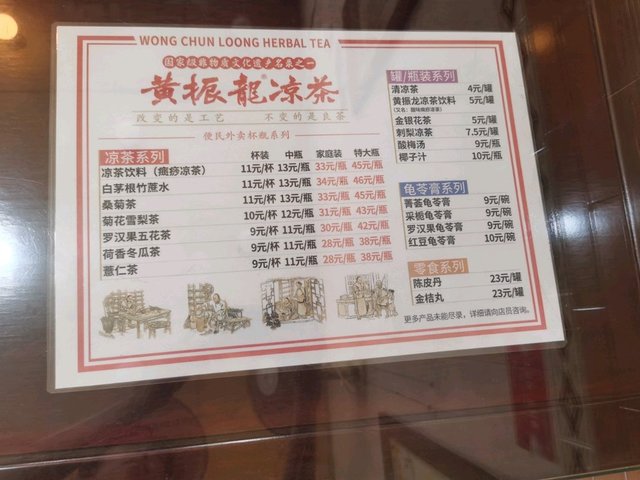 WONG CHUN LOONG HERBAL TEA
国家级非物质文化遗产名录之一
黄振龙®凉茶
改变的是工艺 不变的是良茶
便民外卖杯瓶系列
凉茶系列 杯装 中瓶 家庭装 特大瓶
凉茶饮料（癍痧凉茶） 11元/杯 13元/瓶 33元/瓶 45元/瓶
白茅根竹蔗水 11元/杯 13元/瓶 34元/瓶 46元/瓶
桑菊茶 11元/杯 13元/瓶 33元/瓶 45元/瓶
菊花雪梨茶 10元/杯 12元/瓶 31元/瓶 43元/瓶
罗汉果五花茶 9元/杯 11元/瓶 30元/瓶 42元/瓶
荷香冬瓜茶 9元/杯 11元/瓶 28元/瓶 38元/瓶
薏仁茶 9元/杯 11元/瓶 28元/瓶 38元/瓶
罐/瓶装系列
清凉茶 4元/罐
黄振龙凉茶饮料 5元/罐
（又名：癍痧凉茶）
金银花茶 5元/罐
刺梨凉茶 7.5元/罐
酸梅汤 9元/瓶
椰子汁 10元/瓶
龟苓膏系列
菁荟龟苓膏 9元/碗
采栀龟苓膏 9元/碗
罗汉果龟苓膏 9元/碗
红豆龟苓膏 10元/碗
零食系列
陈皮丹 23元/罐
金桔丸 23元/罐
更多产品未能尽录，详细请向店员咨询。